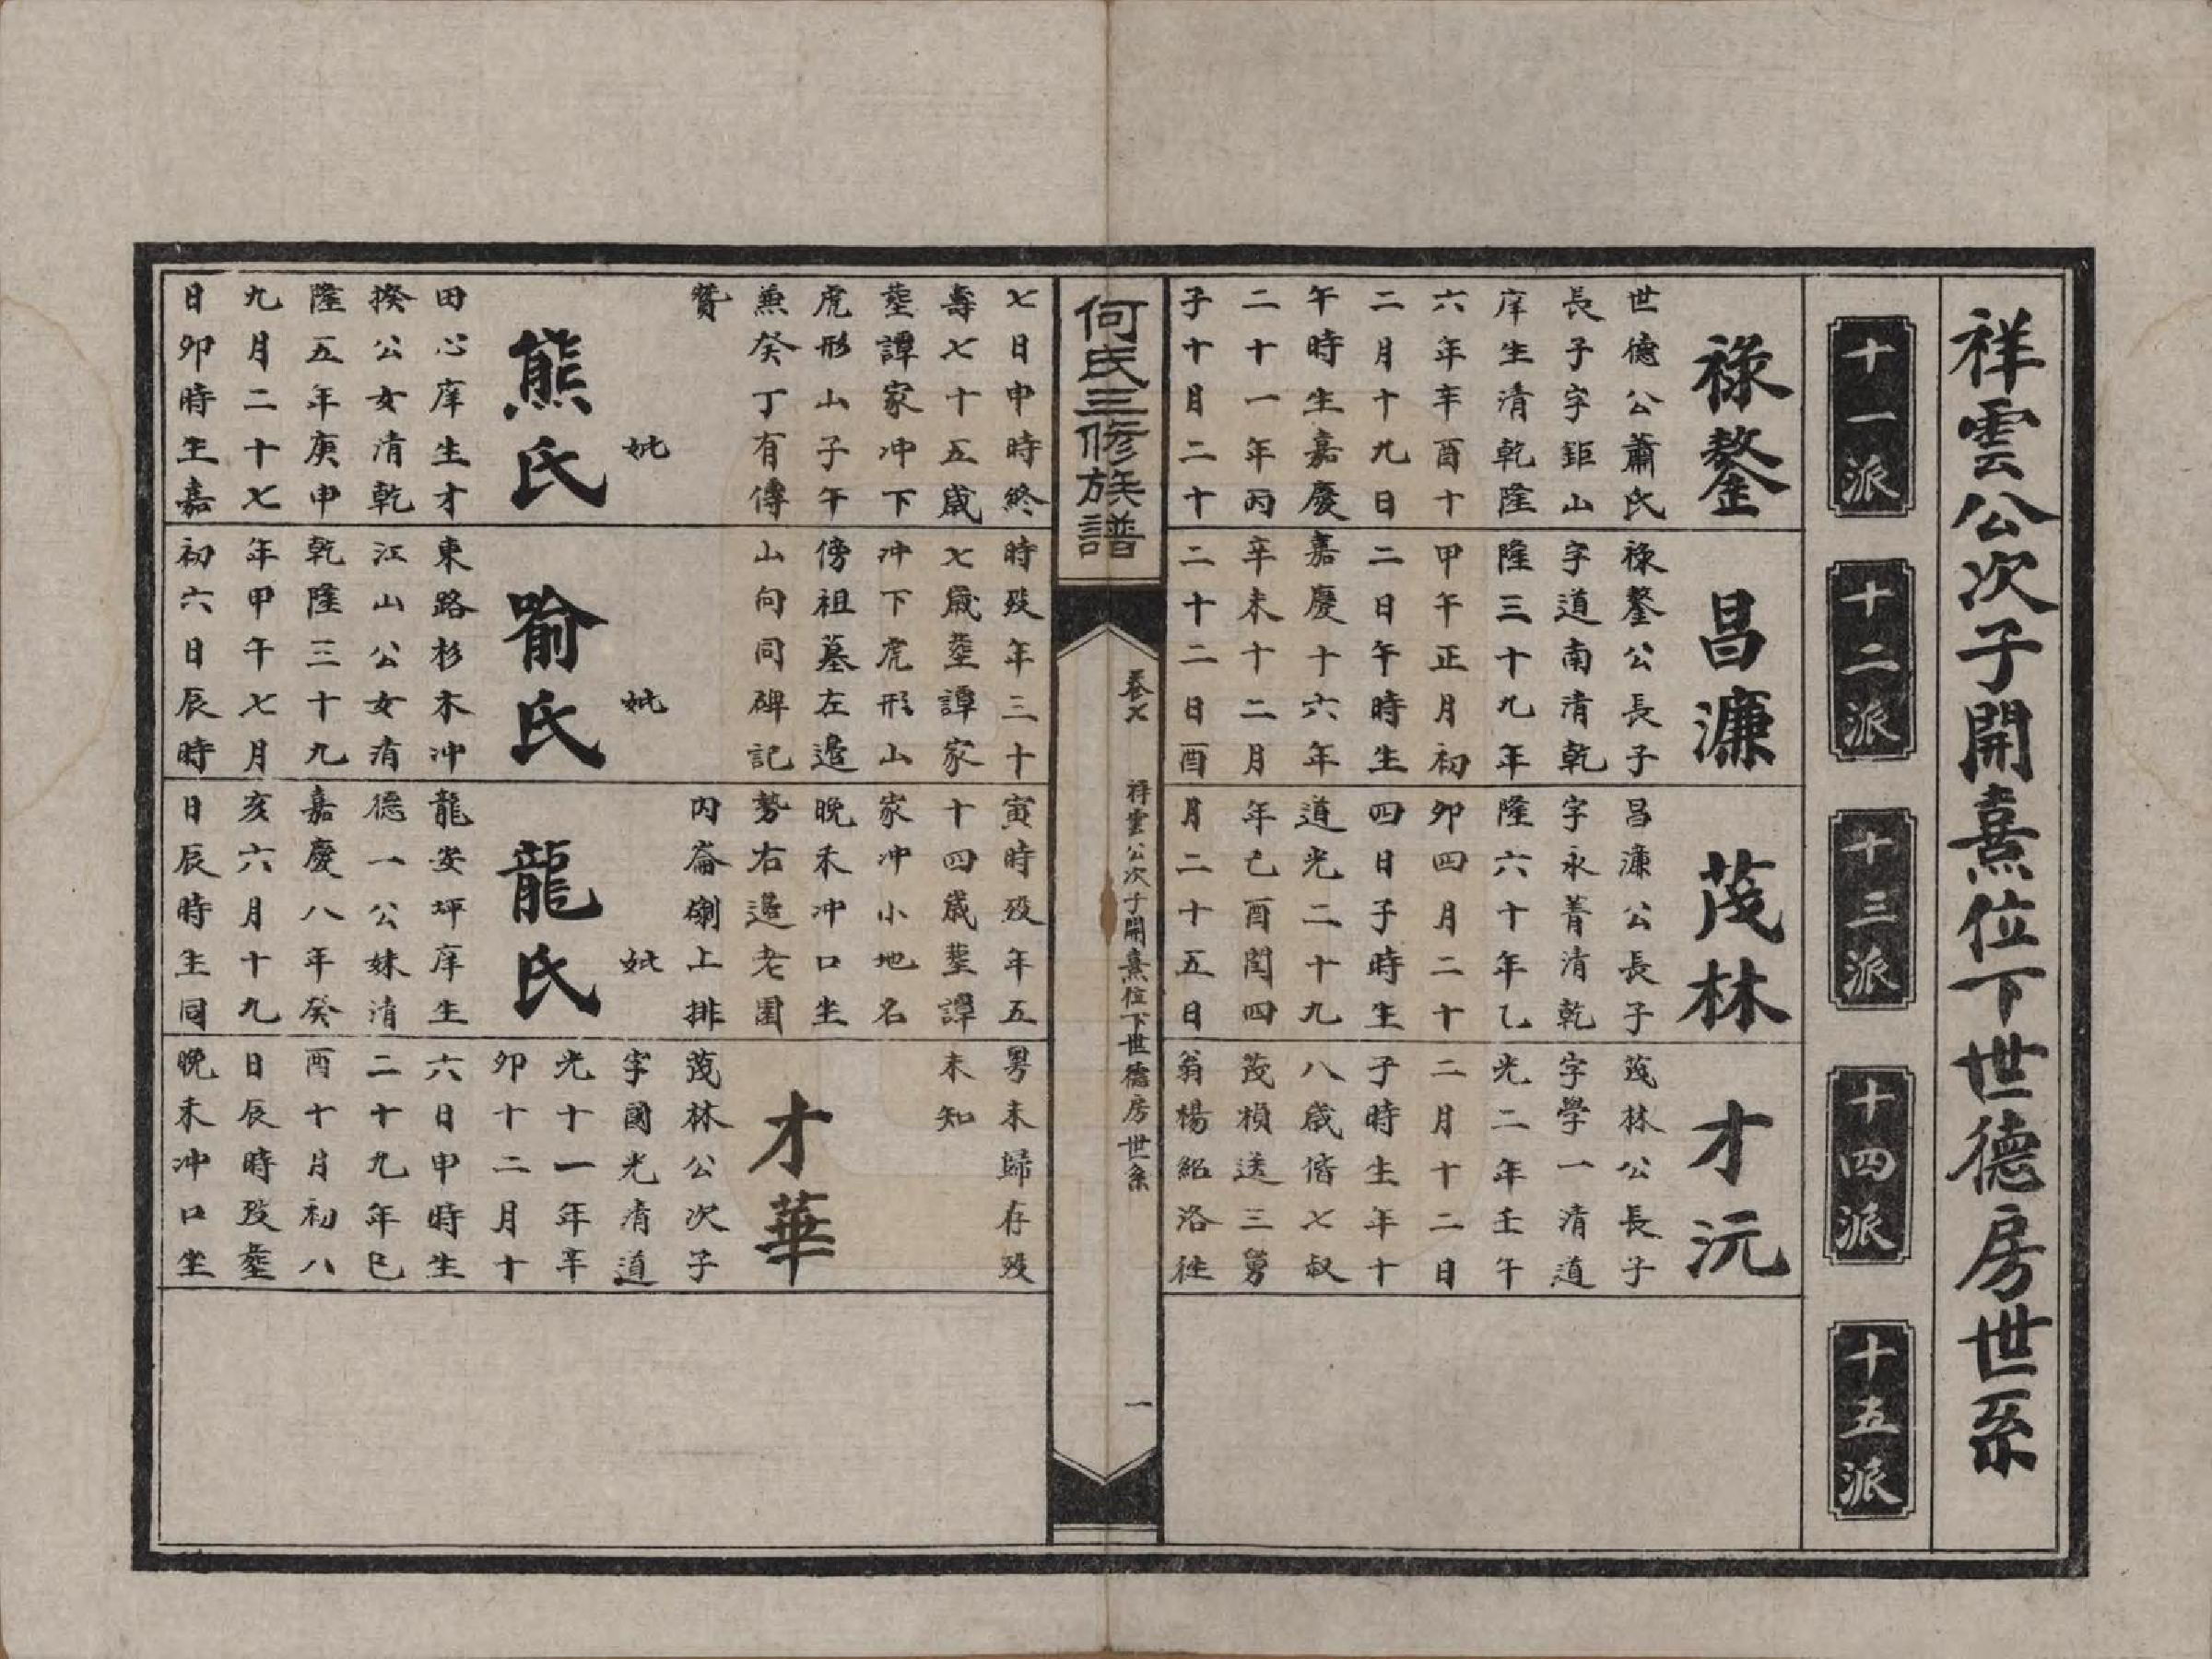 祥雲公次子開熹位下世德房世系
十一派
十二派
十三派
十四派
十五派
祿鏊
世德公蕭氏
長子字鉅山
庠生清乾隆
六年辛酉十
二月十九日
午時生嘉慶
二十一年丙
子十月二十
昌濂
祿鏊公長子
字道南清乾
隆三十九年
甲午正月初
二日午時生
嘉慶十六年
辛未十二月
二十二日酉
茂林
昌濂公長子
字永菁清乾
隆六十年乙
卯四月二十
四日子時生
道光二十九
年己酉閏四
月二十五日
才沅
茂林公長子
字學一清道
光二年壬午
二月十二日
子時生年十
八歲偕七叔
茂楨送三舅
翁楊紹洛往
何氏三修族譜
卷七
祥雲公次子開熹位下世德房世系
一
七日申時終
壽七十五歲
塟譚家冲下
虎形山子午
兼癸丁有傳
贊
妣
熊氏
田心庠生才
揆公女清乾
隆五年庚申
九月二十七
日卯時生嘉
時歿年三十
七歲塟譚家
冲下虎形山
傍祖墓左邉
山向同碑記
妣
喻氏
東路杉木冲
江山公女清
乾隆三十九
年甲午七月
初六日辰時
寅時歿年五
十四歲塟譚
家冲小地名
晚禾冲口坐
勢右邉老圍
內崙㓯上排
妣
龍氏
龍安坪庠生
德一公妹清
嘉慶八年癸
亥六月十九
日辰時生同
粤未歸存歿
未知
才華
茂林公次子
字國光清道
光十一年辛
卯十二月十
六日申時生
二十九年己
酉十月初八
日辰時歿塟
晚禾冲口坐